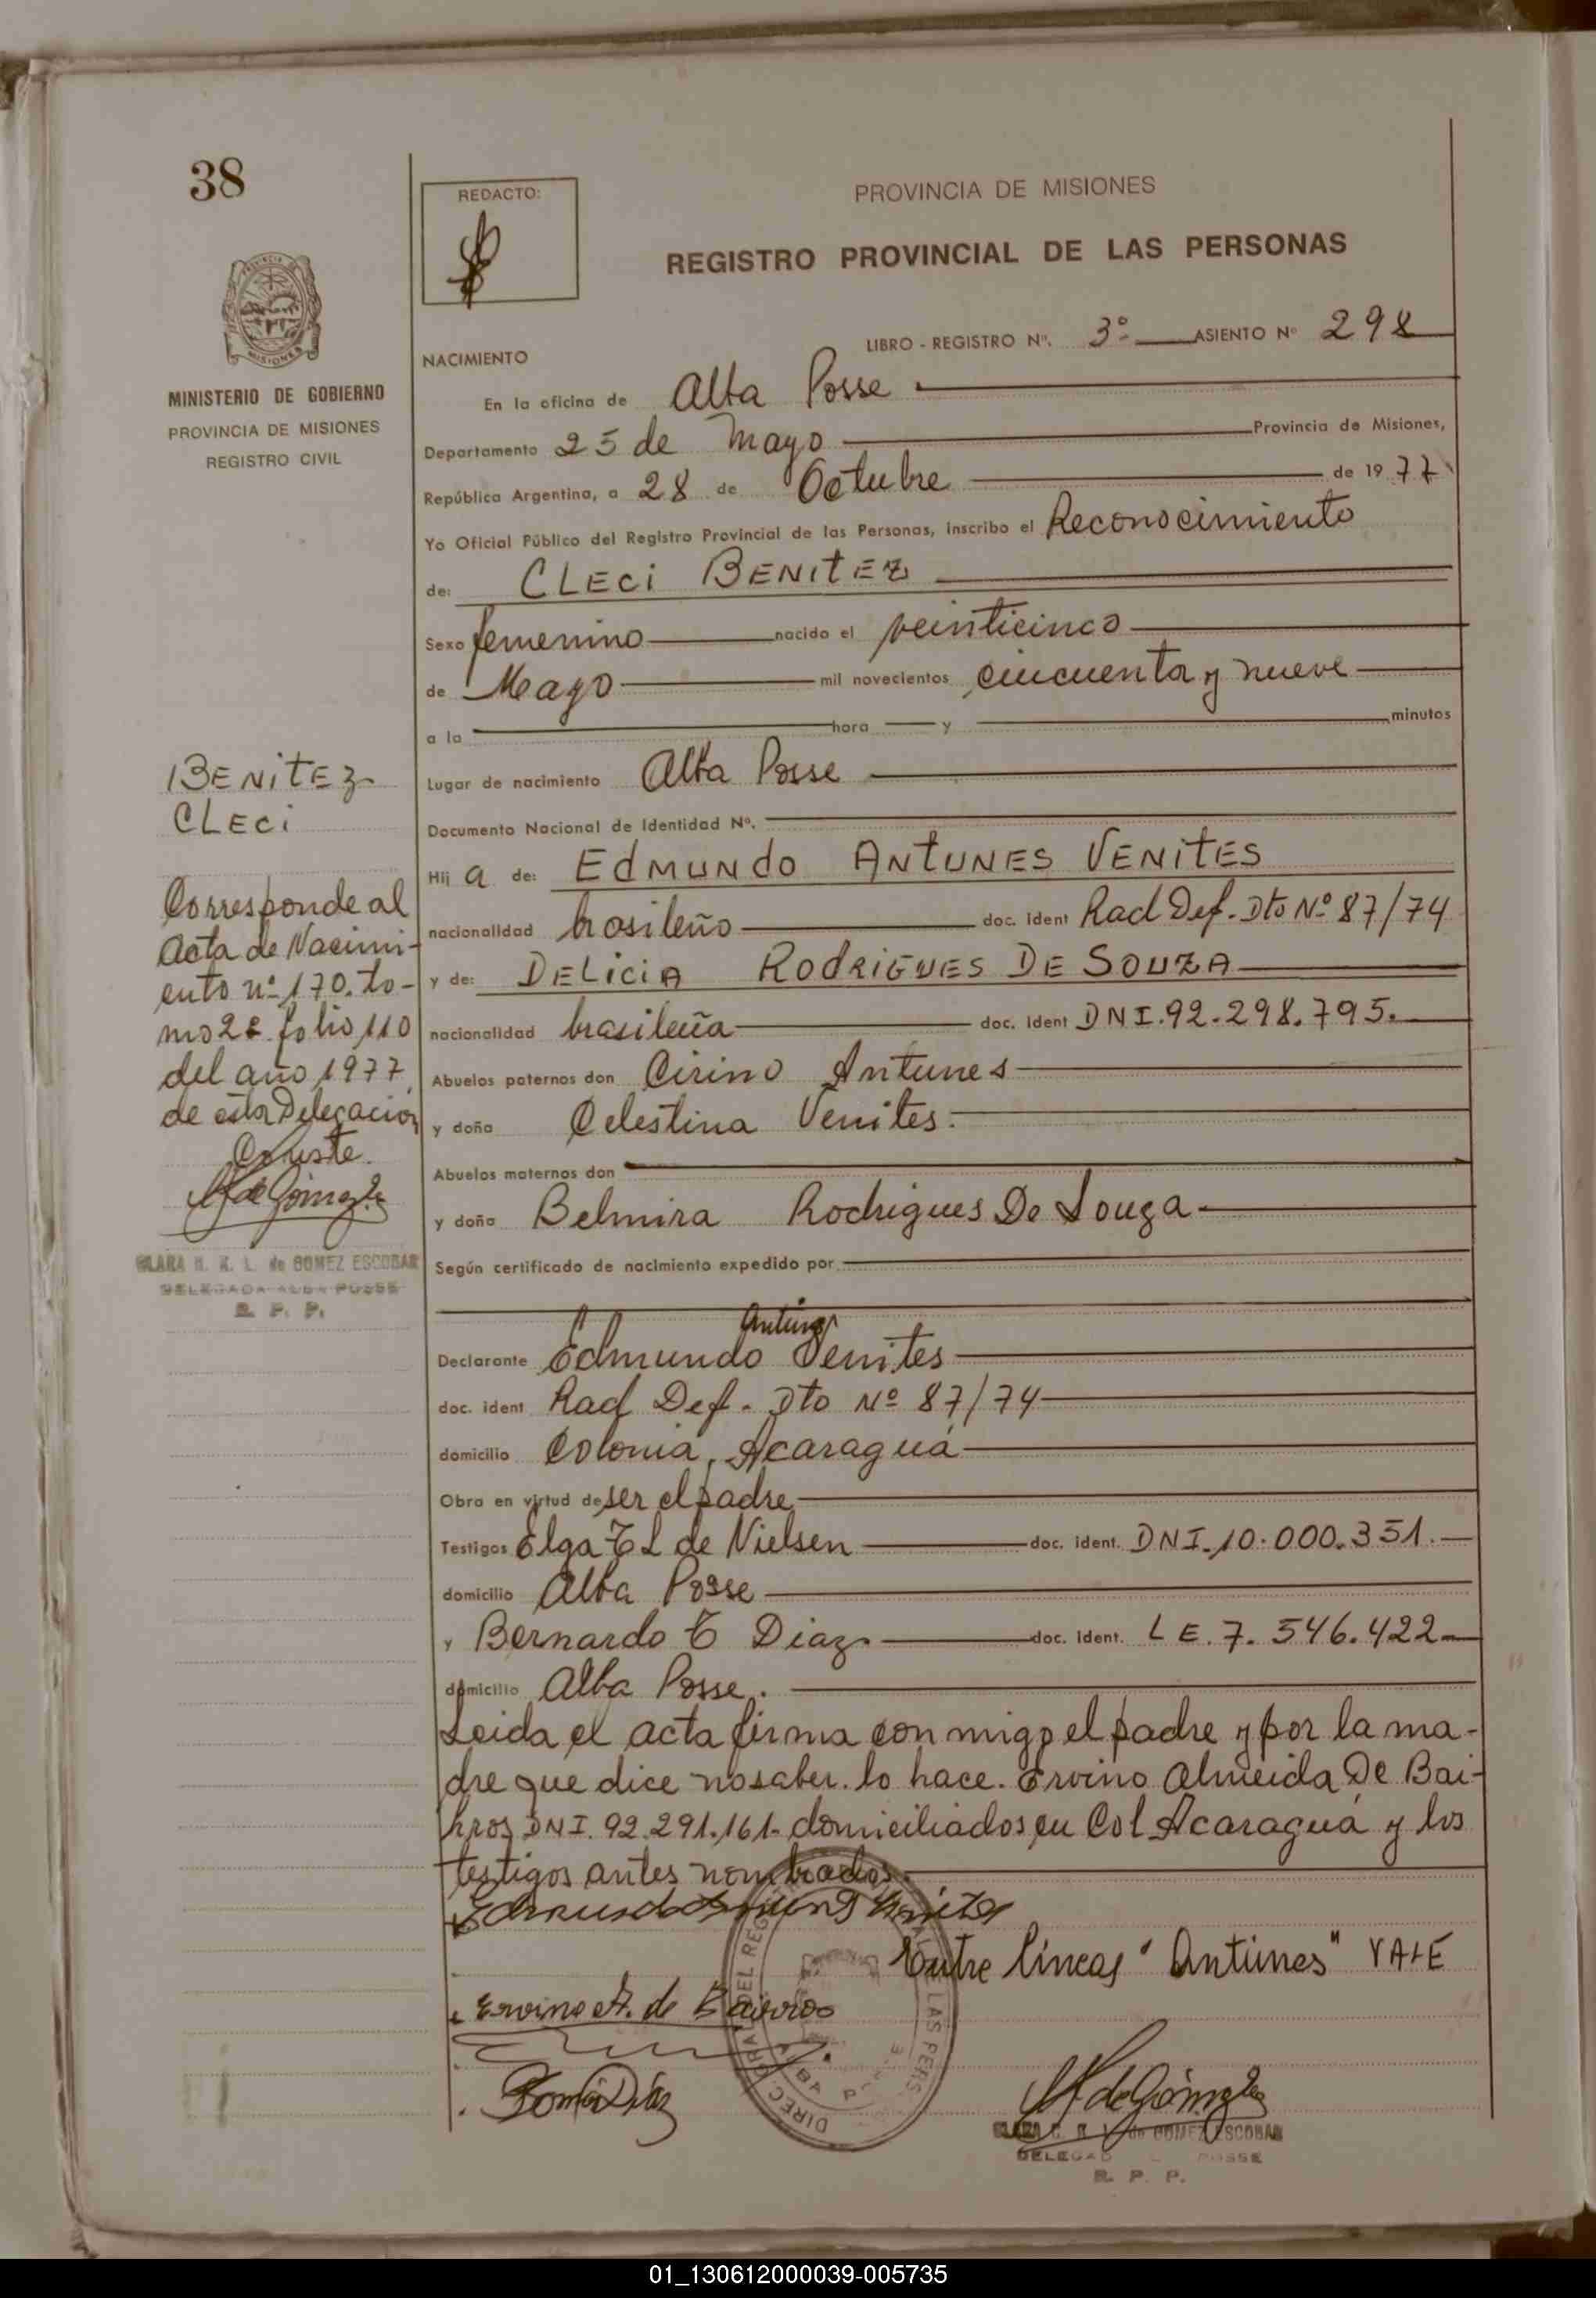 38
REDACTO:
PROVINCIA DE MISIONES
REGISTRO PROVINCIAL DE LAS PERSONAS
PROVINCIA
MISIONES
MINISTERIO DE GOBIERNO
PROVINCIA DE MISIONES
REGISTRO CIVIL
LIBRO - REGISTRO Nº. 3º ASIENTO Nº 298
NACIMIENTO
En la oficina de Alba Posse
Departamento 25 de Mayo Provincia de Misiones,
República Argentina, a 28 de Octubre de 1977
Yo Oficial Público del Registro Provincial de las Personas, inscribo el Reconocimiento
de: CLECI BENITEZ
Sexo femenino nacido el veinticinco
de Mayo mil novecientos cincuenta y nueve
a la hora y minutos
Lugar de nacimiento Alba Posse
Documento Nacional de Identidad Nº.
Hij a de: EDMUNDO ANTUNES VENITES
nacionalidad brasileño doc. ident Rad Def. Dto Nº 87/74
y de: DELICIA RODRIGUES DE SOUZA
nacionalidad brasileña doc. ident DNI. 92.298.795.
Abuelos paternos don Cirino Antunes
y doña Celestina Venites.
Abuelos maternos don
y doña Belmira Rodrigues De Souza
Según certificado de nacimiento expedido por
Antunes
Declarante Edmundo Venites
doc. ident Rad Def. Dto Nº 87/74
domicilio Colonia, Acaraguá
Obra en virtud de ser el padre
Testigos Elga T L de Nielsen doc. ident. DNI. 10.000.351.
domicilio Alba Posse
y Bernardo T Diaz doc. ident. L E. 7.546.422
domicilio Alba Posse.
Leida el acta firma conmigo el padre y por la ma-
dre que dice no saber lo hace. Ervino Almeida De Bai-
rros DNI. 92.291.161. domiciliados en Col Acaraguá y los
testigos antes nombrados.
Edmundo Antunes Venites
Entre líneas "Antunes" VALE
Ervino A. de Bairros
ALBA POSSE
CLARA de GOMEZ ESCOBAR
DELEGADA POSSE
R. P. P.
BENITEZ
CLECI
Corresponde al
Acta de Nacimi-
ento nº 170. to-
mo 2º folio 110
del año 1977
de esta Delegación
Conste.
CLARA H. K. L. de GOMEZ ESCOBAR
DELEGADA ALBA POSSE
R. P. P.
01_130612000039-005735